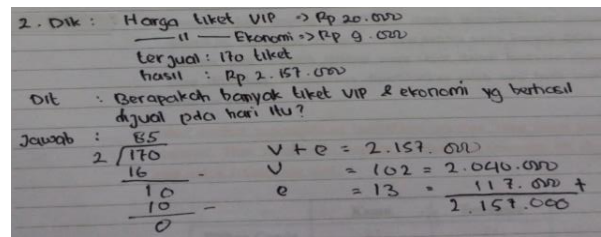 2. Dik : Harga tiket VIP => Rp 20.000
—— 11 —— Ekonomi => Rp 9.000
terjual : 170 tiket
hasil : Rp 2.157.000
Dit : Berapakah banyak tiket VIP & ekonomi yg berhasil
dijual pda hari itu?
Jawab : 85
2 / 170 v + e = 2.157.000
16 - v = 102 = 2.040.000
10 e = 13 = 117.000 +
10 - 2.157.000
0